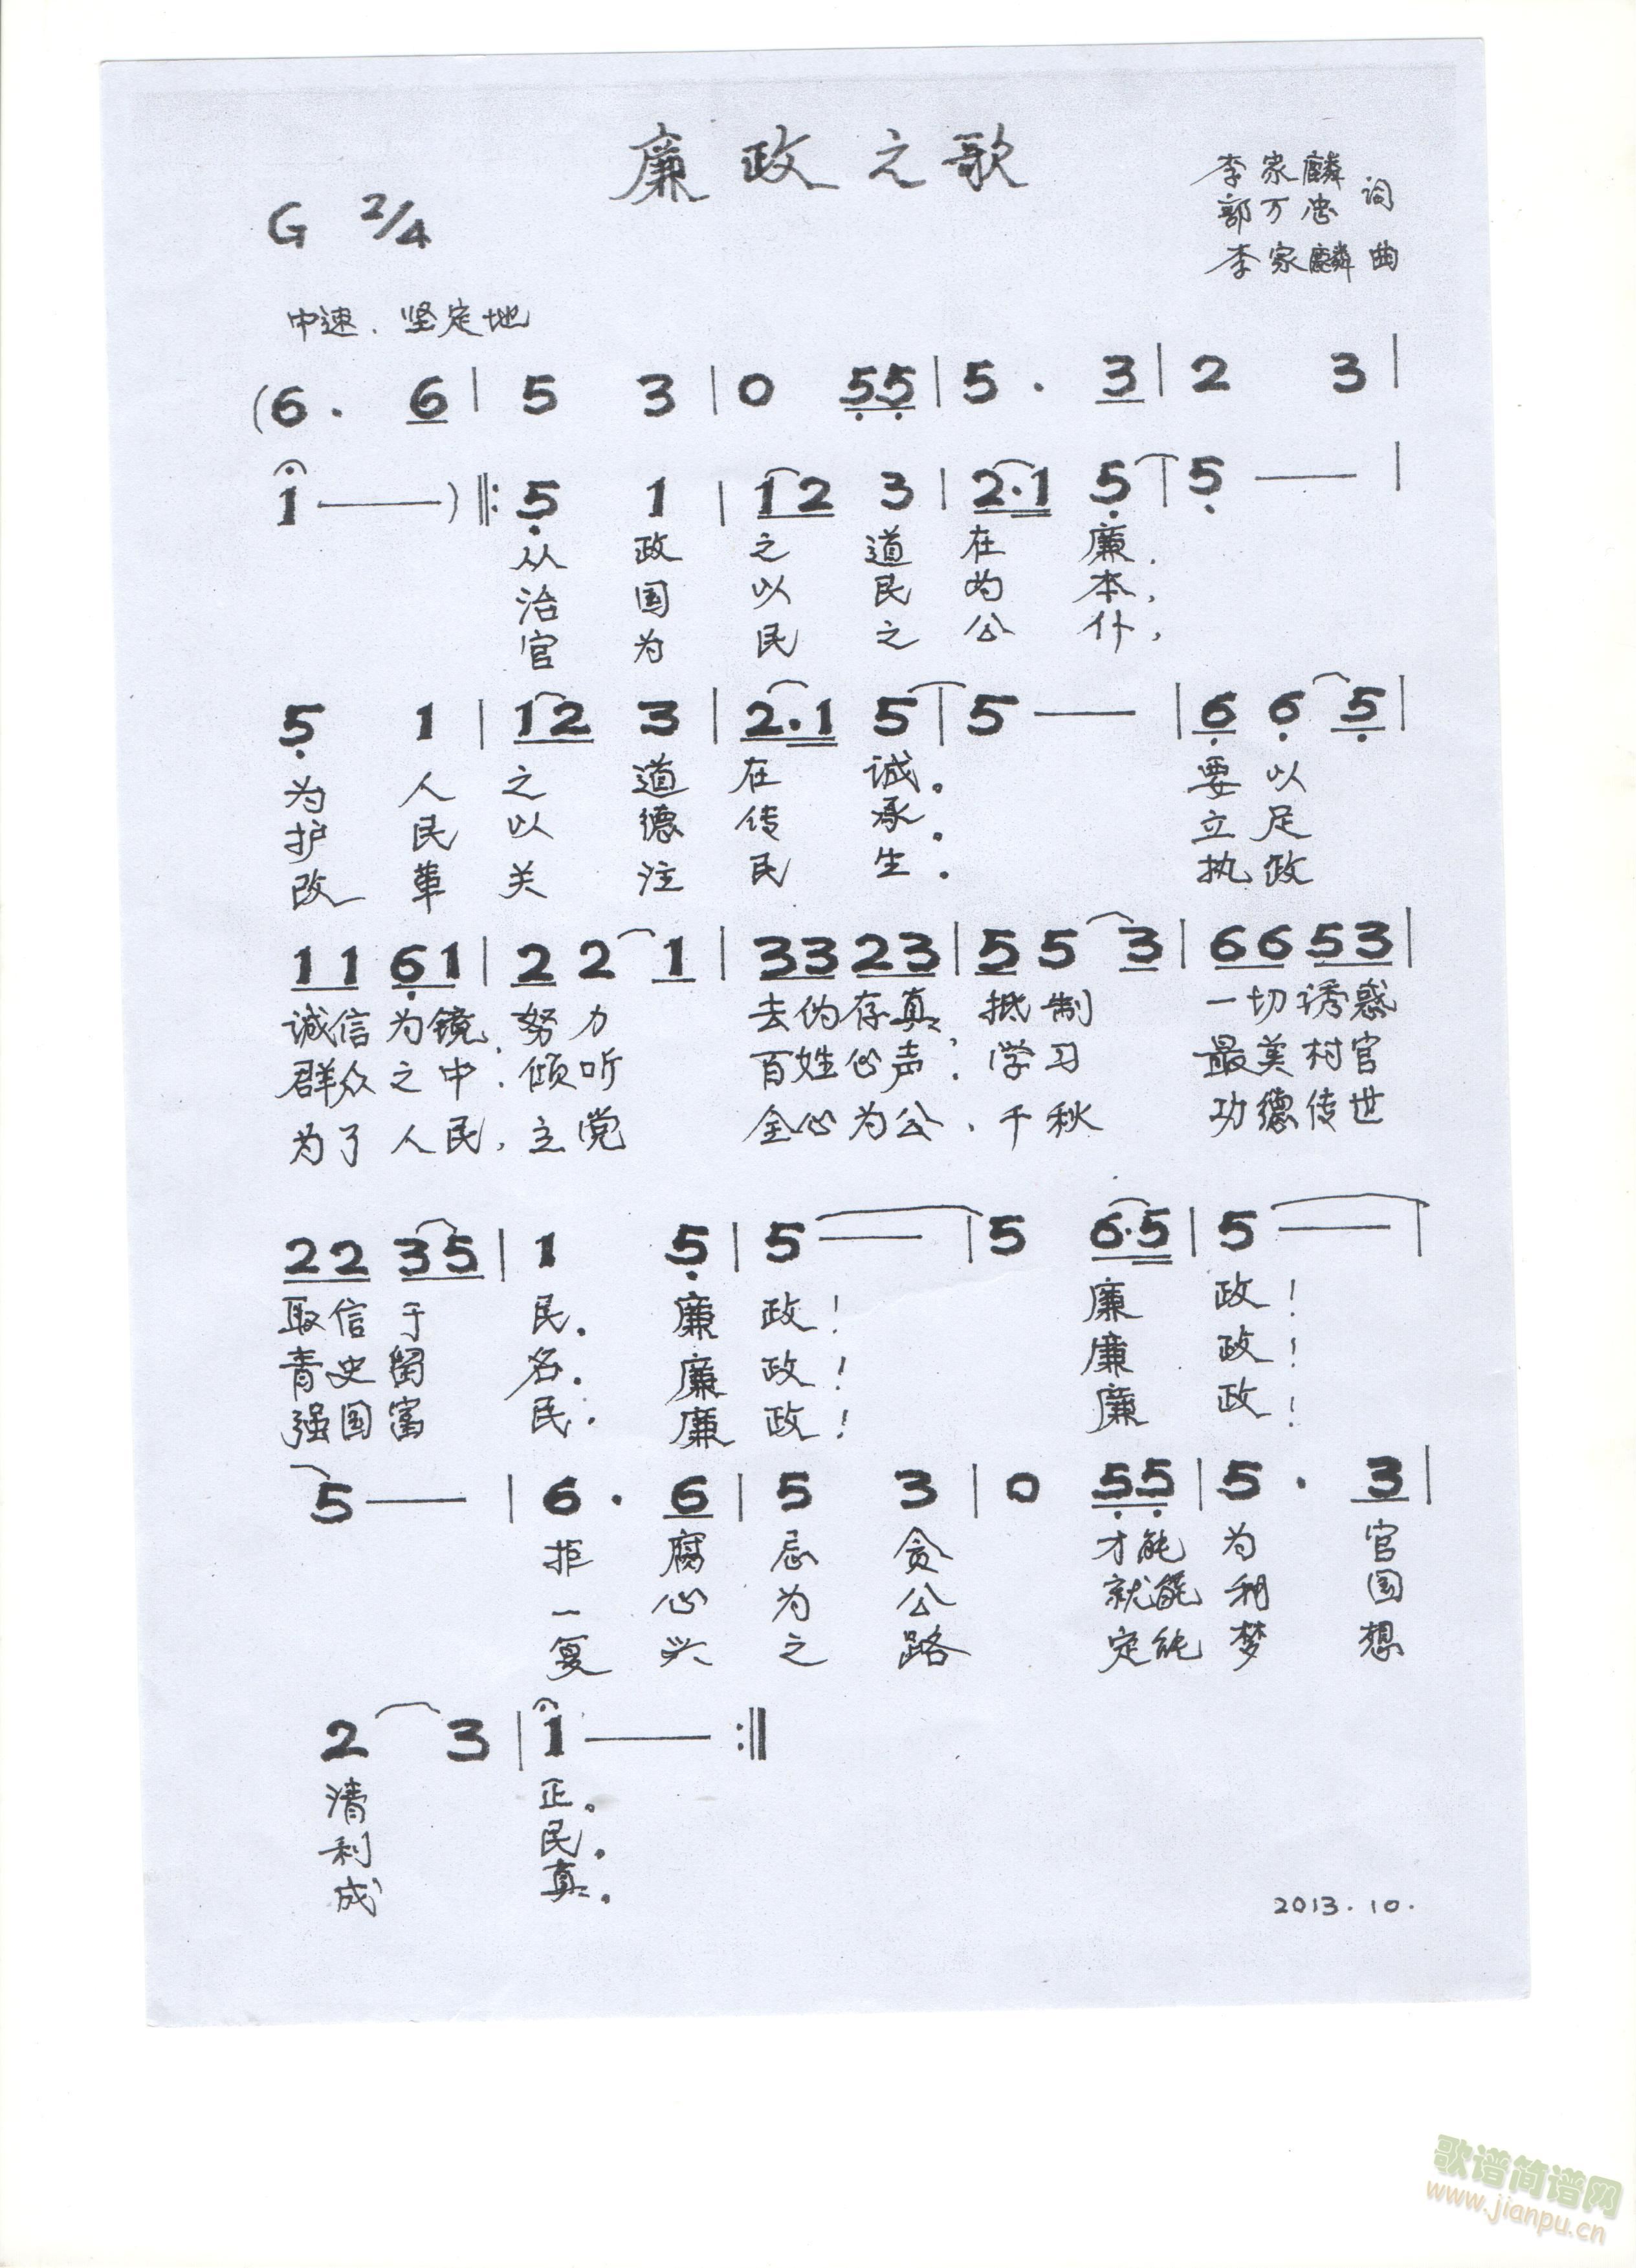 廉政之歌
李家麟
郭万忠 词
李家麟 曲
G 2/4
中速、坚定地
(6· 6 | 5 3 | 0 55 | 5· 3 | 2 3 |
1 —) ‖: 5 1 | 12 3 | 2·1 5 | 5 — |
从 政 之 道 在 廉,
治 国 以 民 为 本,
官 为 民 之 公 仆,
5 1 | 12 3 | 2·1 5 | 5 — | 6 6 5 |
为 人 之 道 在 诚。 要 以
护 民 以 德 传 承。 立 足
改 革 关 注 民 生。 执 政
11 61 | 2 2 1 | 33 23 | 5 5 3 | 66 53 |
诚信为镜,努力 去伪存真,抵制 一切诱惑
群众之中,倾听 百姓心声,学习 最美村官
为了人民,立党 全心为公,千秋 功德传世
22 35 | 1 5 | 5 — | 5 6·5 | 5 — |
取信于 民。 廉 政! 廉 政!
青史留 名。 廉 政! 廉 政!
强国富 民。 廉 政! 廉 政!
5 — | 6· 6 | 5 3 | 0 55 | 5· 3 |
拒 腐 忌 贪 才能 为 官
一 心 为 公 就能 利 国
复 兴 之 路 定能 梦 想
2 3 | 1 — :‖
清 正。
利 民。
成 真。
2013.10.
歌谱简谱网
www.jianpu.cn